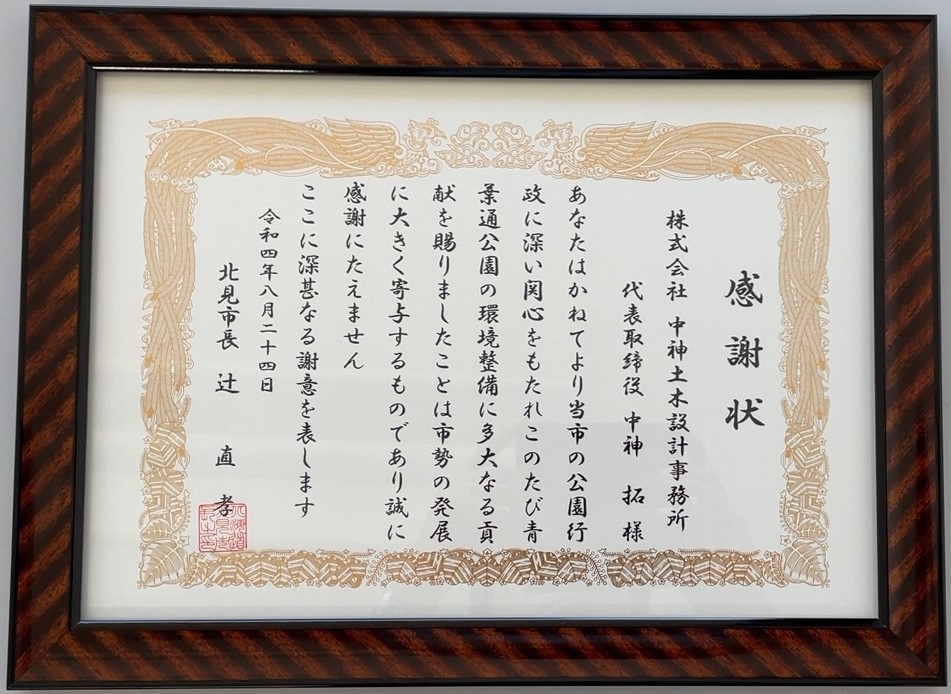 感謝状
株式会社 中神土木設計事務所
代表取締役 中神 拓 様
あなたはかねてより当市の公園行
政に深い関心をもたれこのたび青
葉通公園の環境整備に多大なる貢
献を賜りましたことは市勢の発展
に大きく寄与するものであり誠に
感謝にたえません
ここに深甚なる謝意を表します
令和四年八月二十四日
北見市長 辻 直 孝